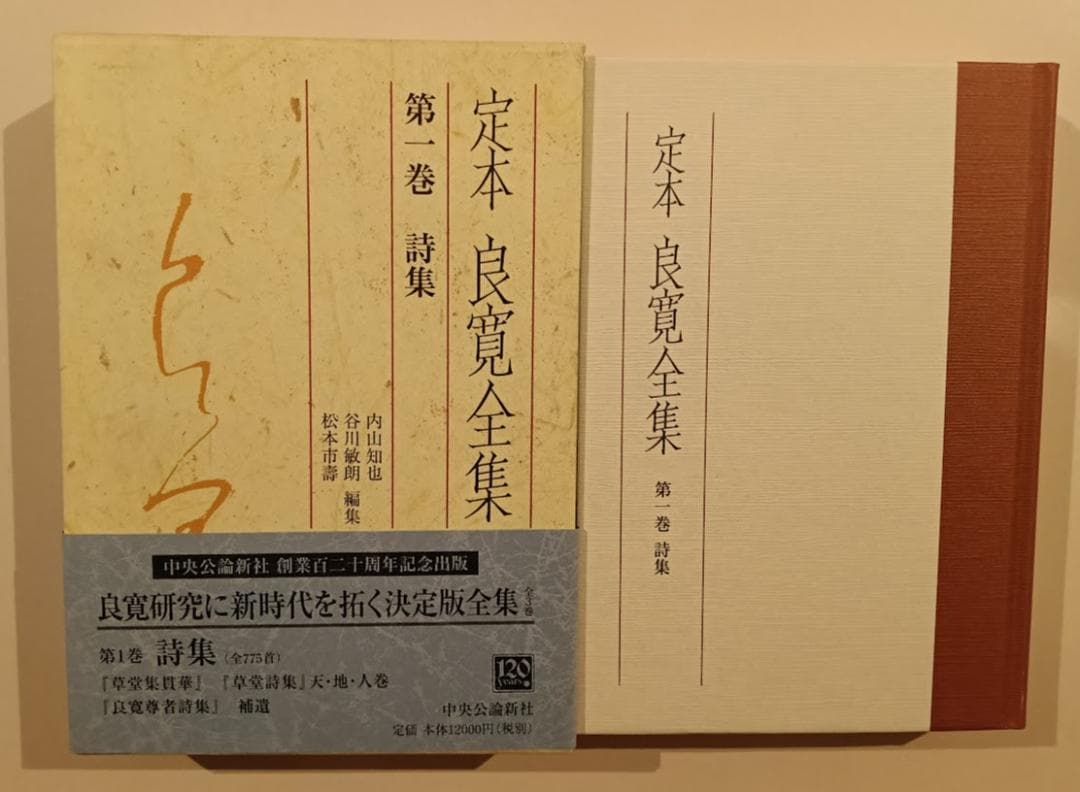 定本 良寛全集
第一巻 詩集
内山知也
谷川敏朗 編集
松本市壽
中央公論新社 創業百二十周年記念出版
良寛研究に新時代を拓く決定版全集 全3巻
第1巻 詩集(全775首)
『草堂集貫華』 『草堂詩集』天・地・人巻
『良寛尊者詩集』 補遺
120
years.
中央公論新社
定価 本体12000円(税別)
定本 良寛全集 第一巻 詩集